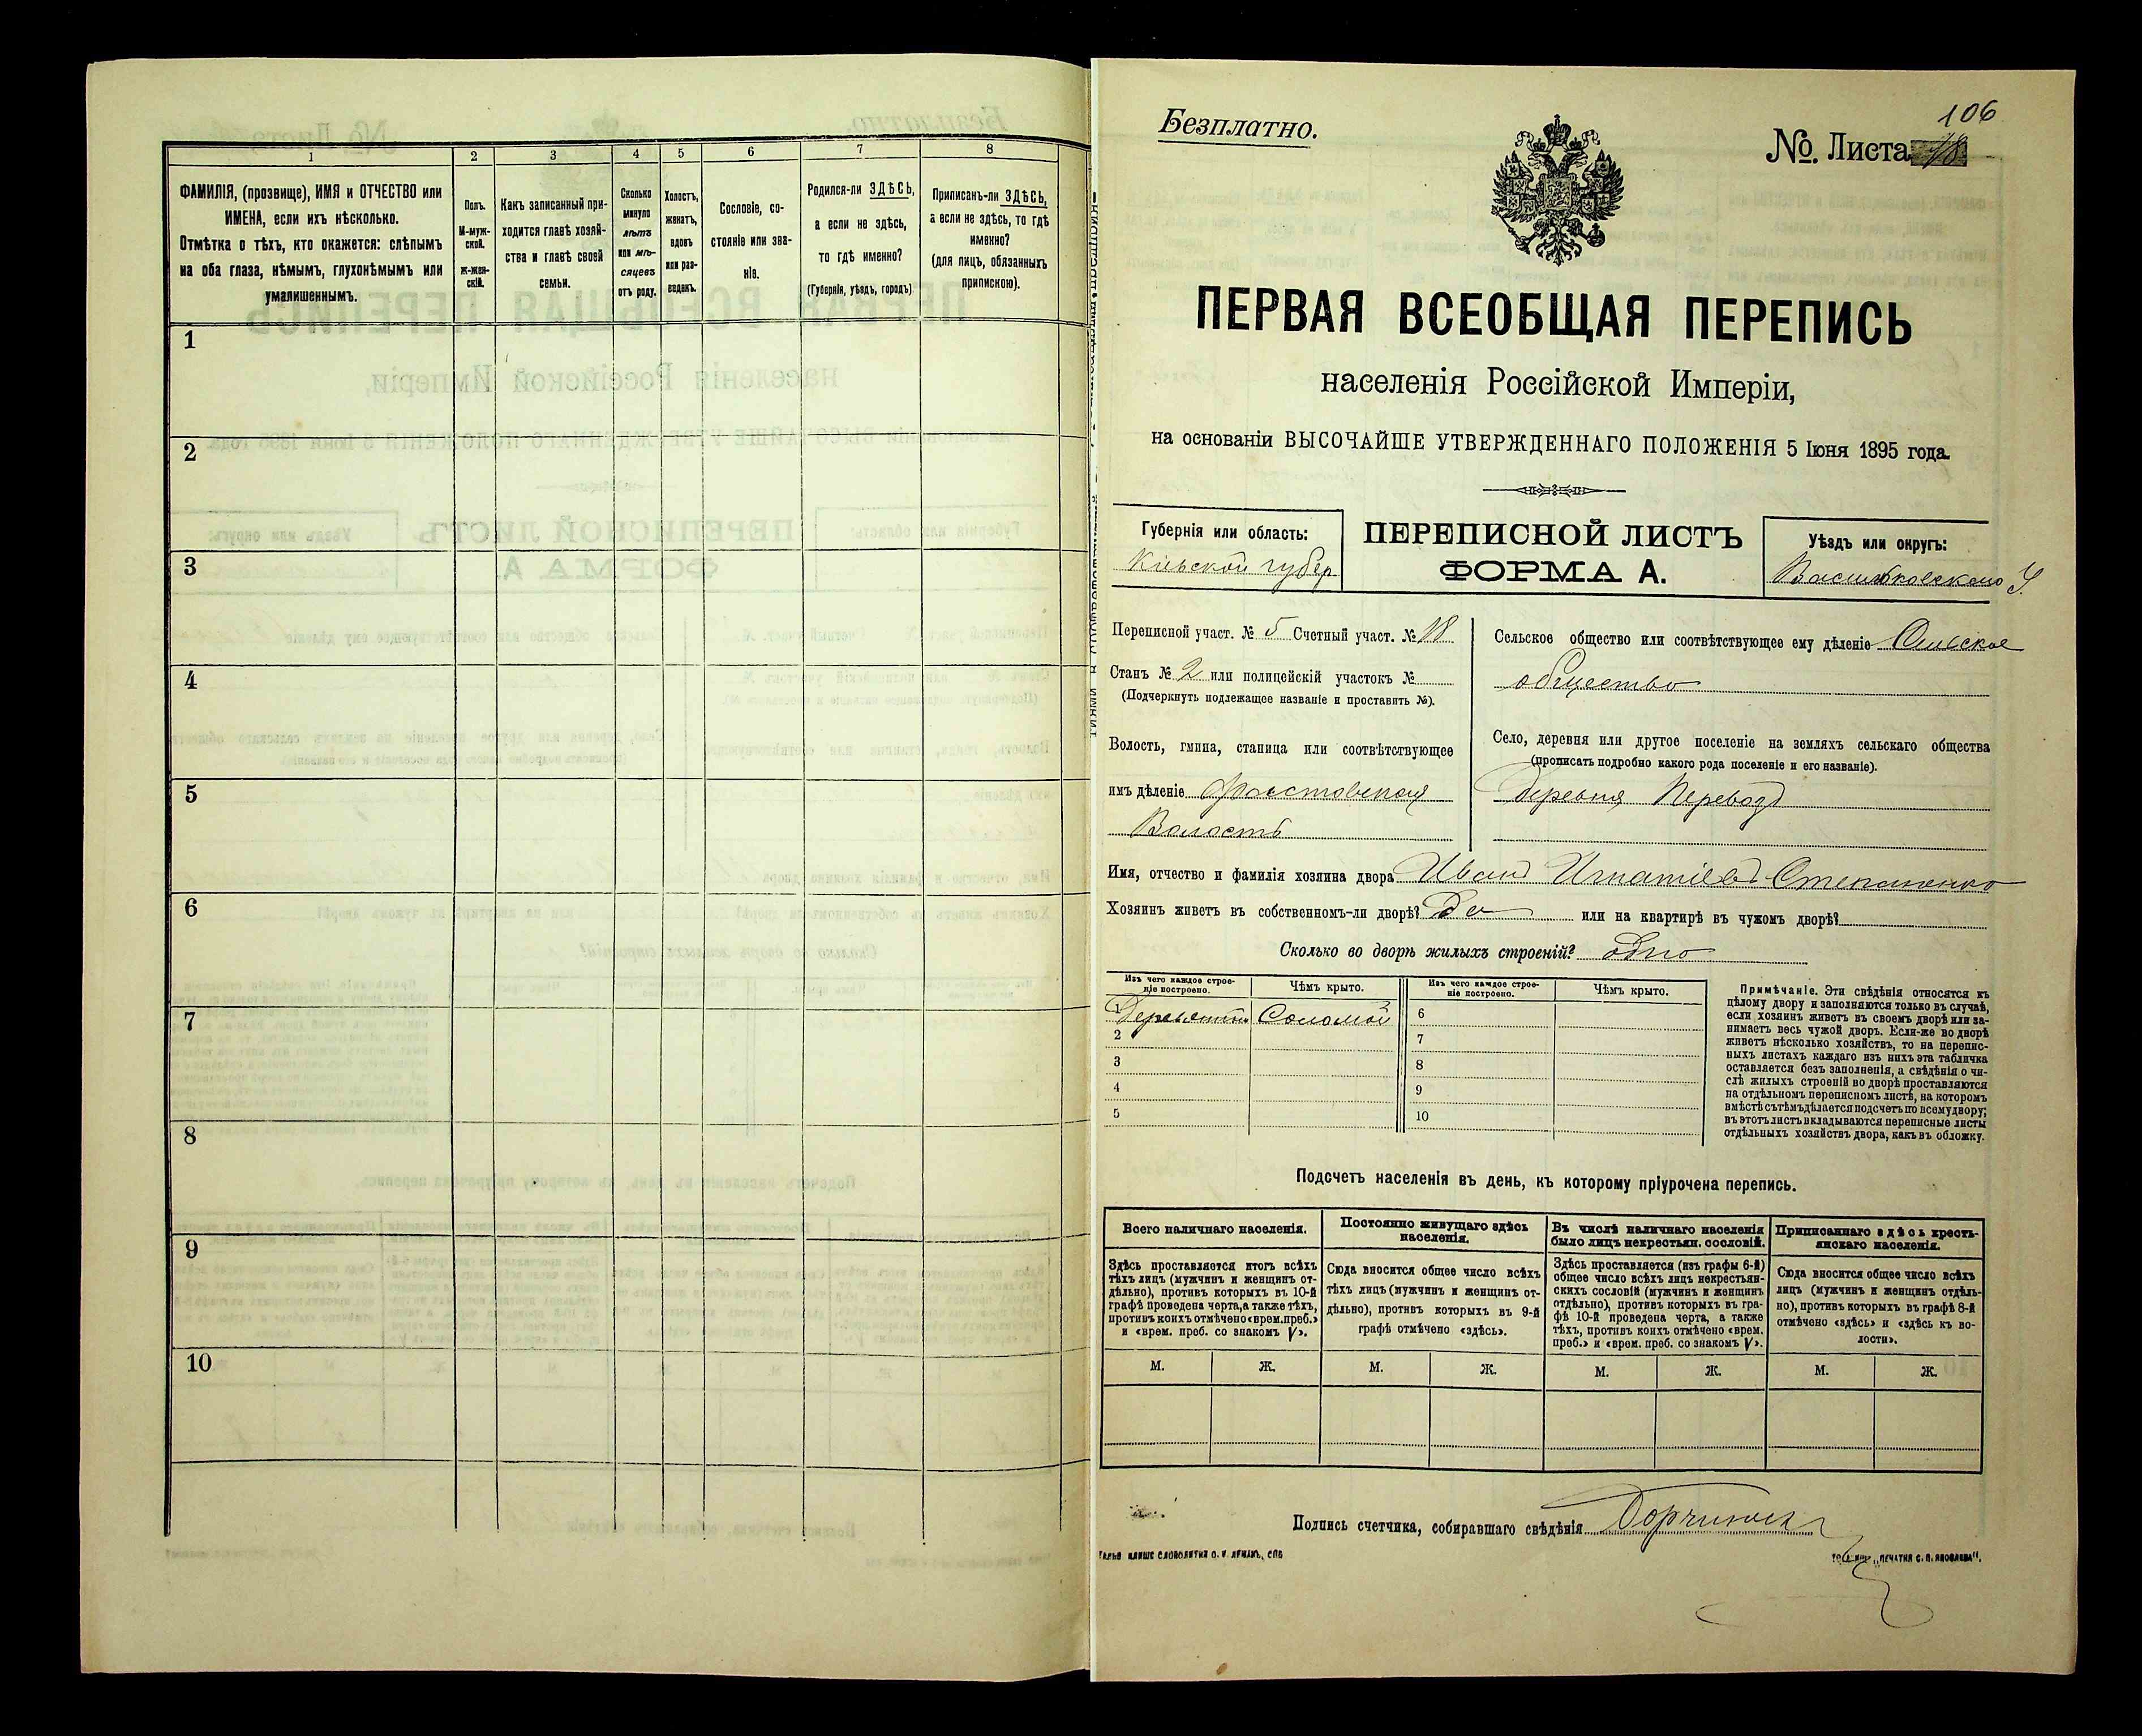 1
2
3
4
5
6
7
8
ФАМИЛІЯ, (прозвище), ИМЯ и ОТЧЕСТВО или
ИМЕНА, если ихъ нѣсколько.
Отмѣтка о тѣхъ, кто окажется: слѣпымъ
на оба глаза, нѣмымъ, глухонѣмымъ или
умалишеннымъ.
Полъ.
М-муж-
ской.
ж-жен-
скій.
Какъ записанный при-
ходится главѣ хозяй-
ства и главѣ своей
семьи.
Сколько
минуло
лѣтъ
или мѣ-
сяцевъ
отъ роду.
Холостъ,
женатъ,
вдовъ
или раз-
веденъ.
Сословіе, со-
стояніе или зва-
ніе.
Родился-ли ЗДѢСЬ,
а если не здѣсь,
то гдѣ именно?
(Губернія, уѣздъ, городъ)
Приписанъ-ли ЗДѢСЬ,
а если не здѣсь, то гдѣ
именно?
(для лицъ, обязанныхъ
припискою).
1
2
3
4
5
6
7
8
9
10
106
Безплатно.
№. Листа 18
ПЕРВАЯ ВСЕОБЩАЯ ПЕРЕПИСЬ
населенія Россійской Имперіи,
на основаніи ВЫСОЧАЙШЕ УТВЕРЖДЕННАГО ПОЛОЖЕНІЯ 5 Іюня 1895 года.
Губернія или область:
Кіевской губер
ПЕРЕПИСНОЙ ЛИСТЪ
ФОРМА А.
Уѣздъ или округъ:
Васильковскаго У.
Переписной участ. № 5 Счетный участ. № 18
Станъ № 2 или полицейскій участокъ №
(Подчеркнуть подлежащее названіе и проставить №).
Волость, гмина, станица или соотвѣтствующее
имъ дѣленіе Фастовская
Волость
Сельское общество или соотвѣтствующее ему дѣленіе
общество
Село, деревня или другое поселеніе на земляхъ сельскаго общества
(прописать подробно какого рода поселеніе и его названіе).
Деревня Перевозъ
Имя, отчество и фамилія хозяина двора Иванъ Игнатіевъ Степаненко
Хозяинъ живетъ въ собственномъ-ли дворѣ? Да или на квартирѣ въ чужомъ дворѣ?
Сколько во дворѣ жилыхъ строеній? одно
Изъ чего каждое строе-
ніе построено.
Чѣмъ крыто.
Изъ чего каждое строе-
ніе построено.
Чѣмъ крыто.
1 Соломой
2
3
4
5
6
7
8
9
10
Примѣчаніе. Эти свѣдѣнія относятся къ
цѣлому двору и заполняются только въ случаѣ,
если хозяинъ живетъ въ своемъ дворѣ или за-
нимаетъ весь чужой дворъ. Если-же во дворѣ
живетъ нѣсколько хозяйствъ, то на перепис-
ныхъ листахъ каждаго изъ нихъ эта табличка
оставляется безъ заполненія, а свѣдѣнія о чи-
слѣ жилыхъ строеній во дворѣ проставляются
на отдѣльномъ переписномъ листѣ, на которомъ
вмѣстѣ съ тѣмъ дѣлается подсчетъ по всему двору;
въ этотъ листъ вкладываются переписные листы
отдѣльныхъ хозяйствъ двора, какъ въ обложку.
Подсчетъ населенія въ день, къ которому пріурочена перепись.
Всего наличнаго населенія.
Здѣсь проставляется итогъ всѣхъ
тѣхъ лицъ (мужчинъ и женщинъ от-
дѣльно), противъ которыхъ въ 10-й
графѣ проведена черта, а также тѣхъ,
противъ коихъ отмѣчено «врем. преб.»
и «врем. преб. со знакомъ V».
Постоянно живущаго здѣсь
населенія.
Сюда вносится общее число всѣхъ
тѣхъ лицъ (мужчинъ и женщинъ от-
дѣльно), противъ которыхъ въ 9-й
графѣ отмѣчено «здѣсь».
Въ числѣ наличнаго населенія
было лицъ некрестьян. сословій.
Здѣсь проставляется (изъ графы 6-й)
общее число всѣхъ лицъ некрестьян-
скихъ сословій (мужчинъ и женщинъ
отдѣльно), противъ которыхъ въ гра-
фѣ 10-й проведена черта, а также
тѣхъ, противъ коихъ отмѣчено «врем.
преб.» и «врем. преб. со знакомъ V».
Приписаннаго здѣсь кресть-
янскаго населенія.
Сюда вносится общее число всѣхъ
лицъ (мужчинъ и женщинъ отдѣль-
но), противъ которыхъ въ графѣ 8-й
отмѣчено «здѣсь» и «здѣсь къ во-
лости».
М.
Ж.
М.
Ж.
М.
Ж.
М.
Ж.
Подпись счетчика, собиравшаго свѣдѣнія